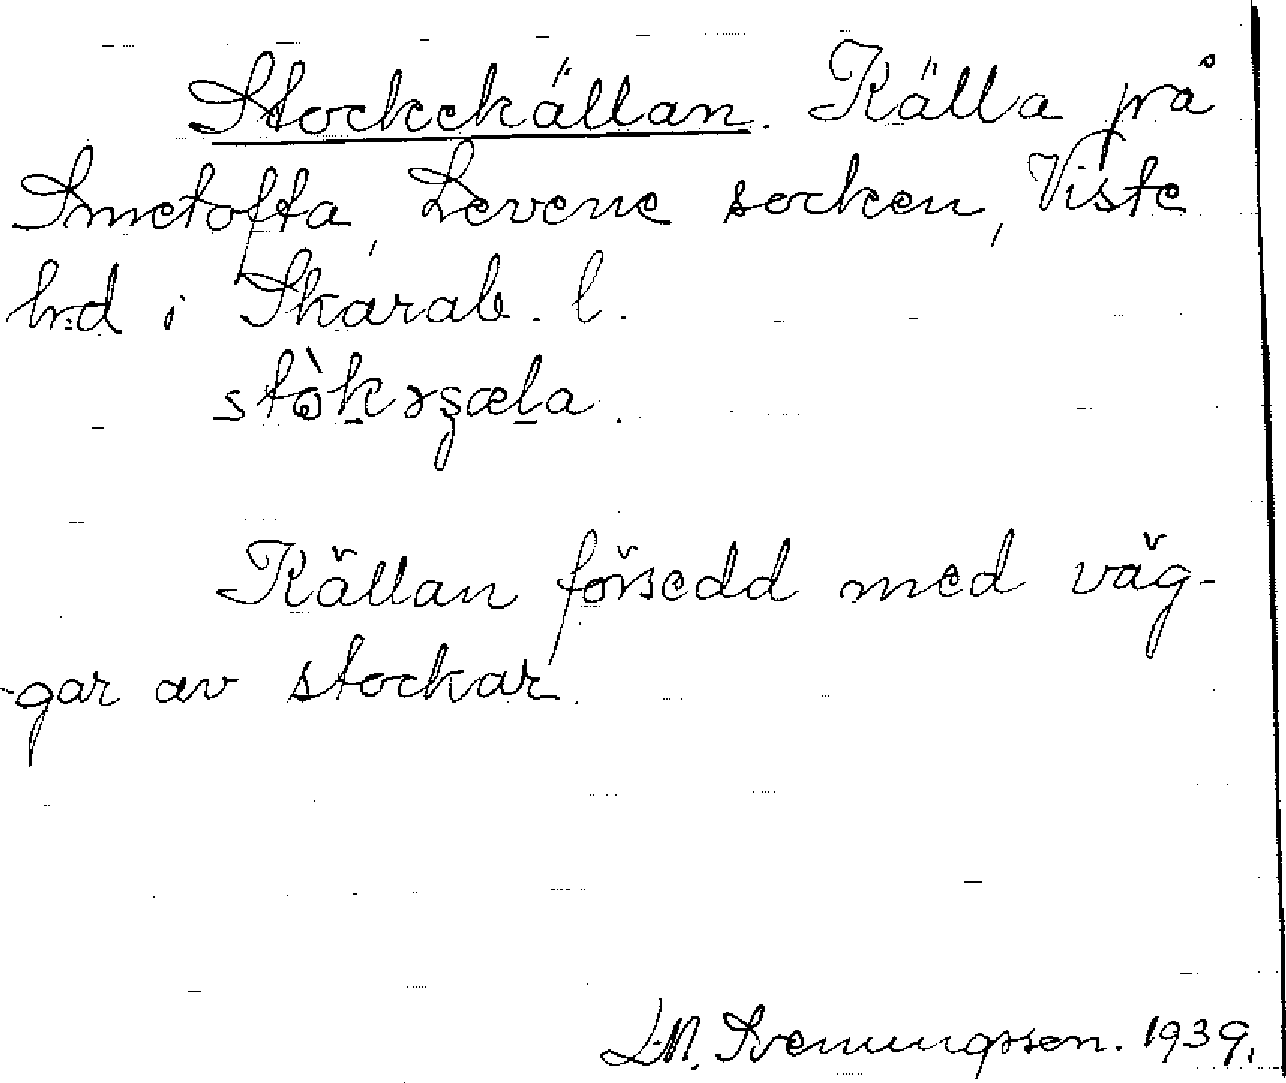 Stockekällan. Källa på
Smetofta, Levene socken, Viste
hrd i Skarab. l.
stòkɜȿæla.
Källan försedd med väg-
gar av stockar.
L.M. Svenungsson. 1939.